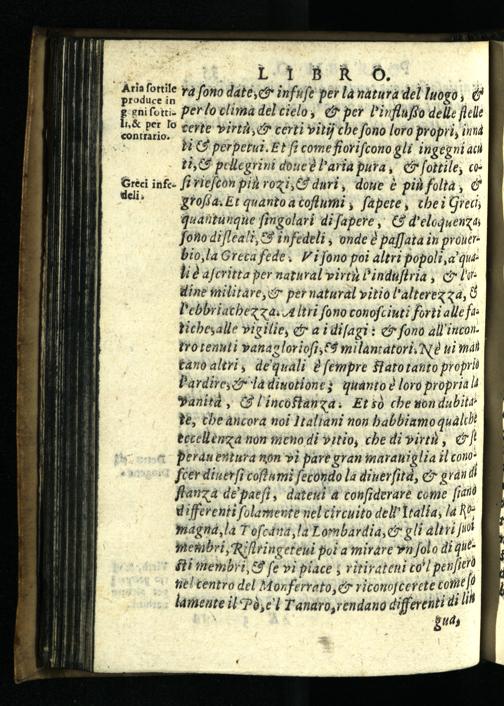 LIBRO.
Aria sottile
produce in
gegni sotti-
li, & per lo
contrario.
Greci infe-
deli.
ra sono date, & infuse per la natura del luogo, &
per lo clima del cielo, & per l'influsso delle stelle
certe virtù, & certi vitij che sono loro propri, inna
ti & perpetui. Et si come fioriscono gli ingegni acu
ti, & pellegrini doue è l'aria pura, & sottile, co-
si riescon più rozi, & duri, doue è più folta, &
grossa. Et quanto a costumi, sapete, che i Greci,
quantunque singolari di sapere, & d'eloquenza,
sono disleali, & infedeli, onde è passata in prouer-
bio, la Greca fede. Vi sono poi altri popoli, a' qua-
li è ascritta per natural virtù l'industria, & l'or-
dine militare, & per natural vitio l'alterezza, &
l'ebbriachezza. Altri sono conosciuti forti alle fa-
tiche, alle vigilie, & a i disagi: & sono all'incon-
tro tenuti vanagloriosi, & milantatori. Nè ui man
cano altri, de' quali è sempre stato tanto proprio
l'ardire, & la diuotione; quanto è loro propria la
vanità, & l'incostanza. Et sò che non dubita-
te, che ancora noi Italiani non habbiamo qualche
eccellenza non meno di vitio, che di virtù, & se
perauentura non vi pare gran marauiglia il cono-
scer diuersi costumi secondo la diuersità, & gran di
stanza de' paesi, dateui a considerare come siano
differenti solamente nel circuito dell'Italia, la Ro-
magna, la Toscana, la Lombardia, & gli altri suoi
membri, Ristringeteui poi a mirare vn solo di que-
sti membri, & se vi piace, ritirateui co'l pensiero
nel centro del Monferrato, & riconoscerete come so
lamente il Pò, e'l Tanaro, rendano differenti di lin
gua,